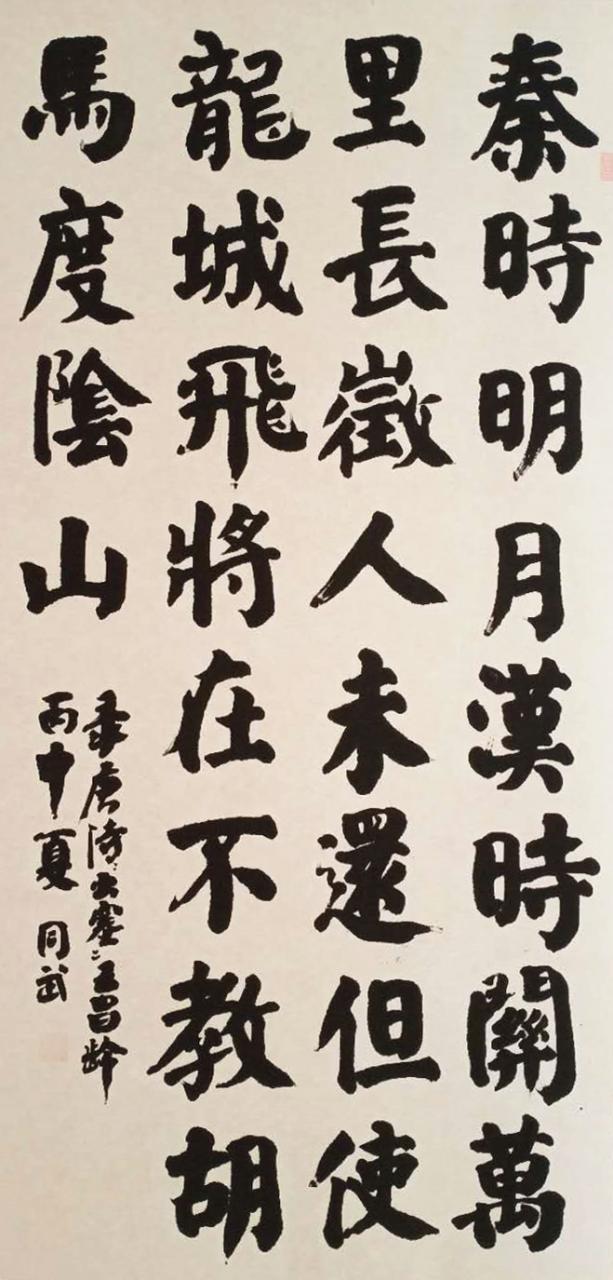 秦時明月漢時關萬
里長徵人未還但使
龍城飛將在不教胡
馬度陰山
录唐诗出塞 王昌龄
丙申夏 同武